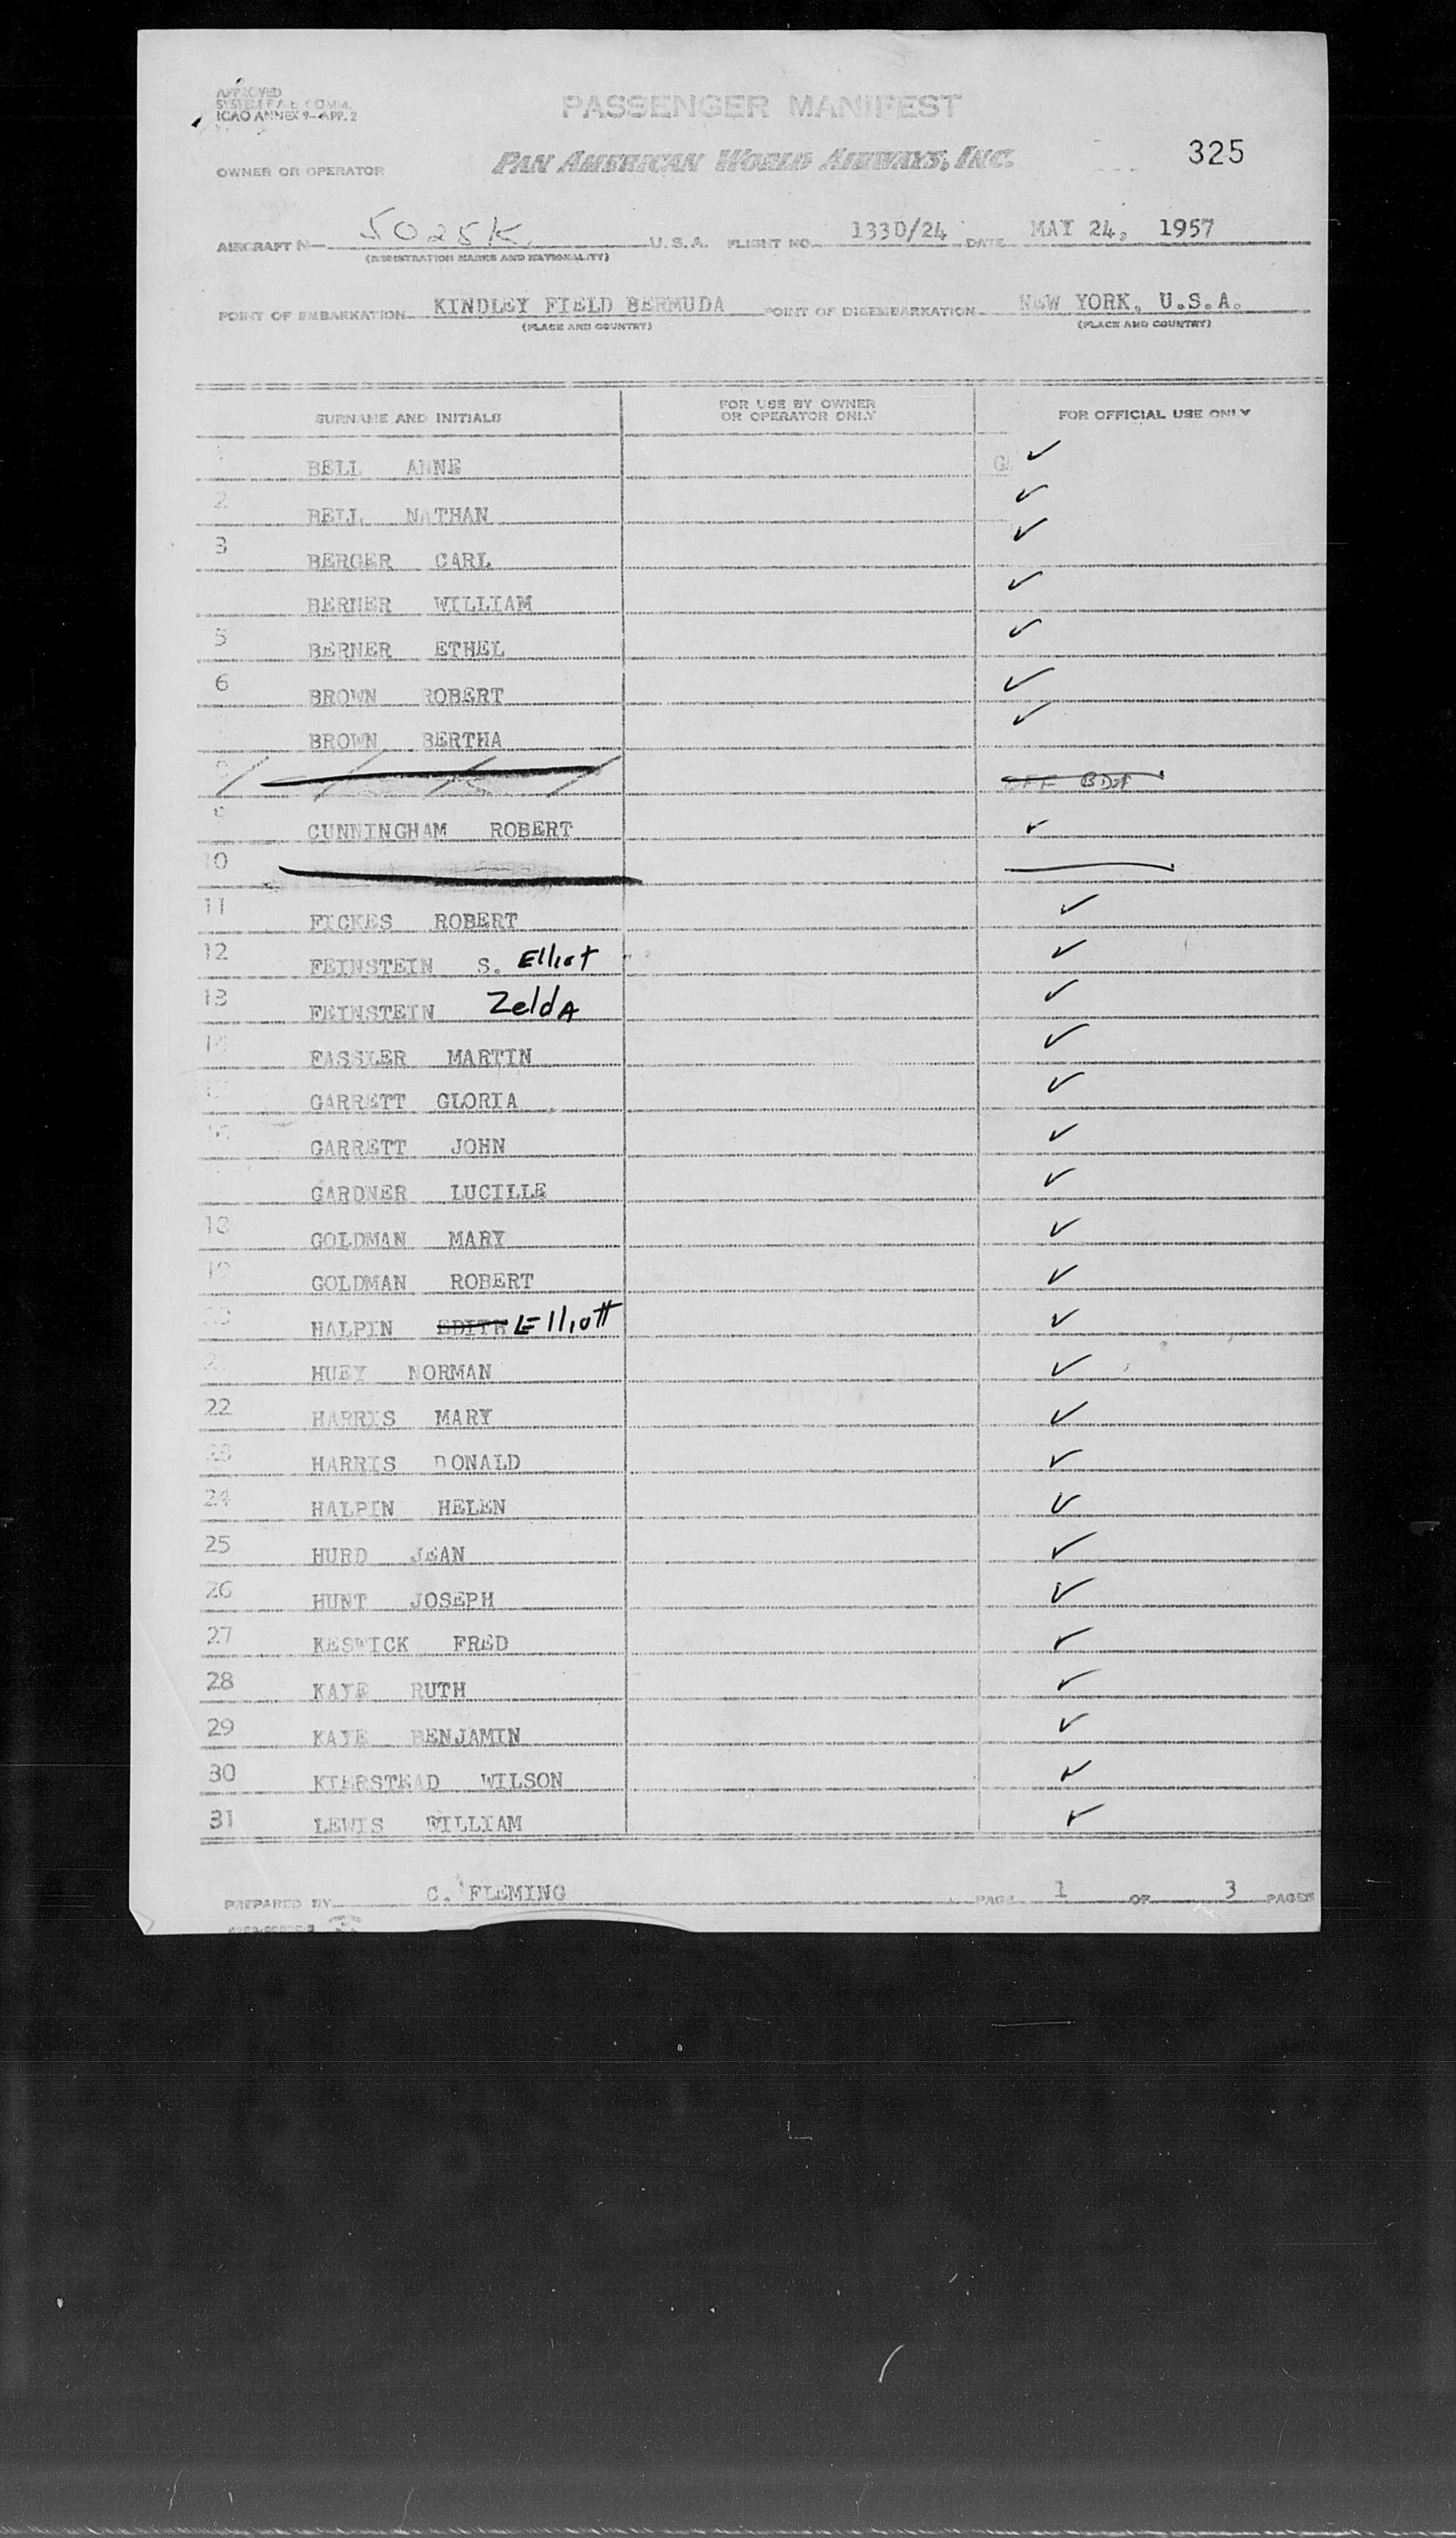 APPROVED
SYSTEM F.A.L. COMM.
ICAO ANNEX 9-APP. 2
PASSENGER MANIFEST
325
OWNER OR OPERATOR PAN AMERICAN WORLD AIRWAYS, INC.
AIRCRAFT N- 5025K U.S.A. FLIGHT NO. 1330/24 DATE MAY 24, 1957
(REGISTRATION MARKS AND NATIONALITY)
POINT OF EMBARKATION KINDLEY FIELD BERMUDA POINT OF DISEMBARKATION NEW YORK, U.S.A.
(PLACE AND COUNTRY) (PLACE AND COUNTRY)
SURNAME AND INITIALS FOR USE BY OWNER OR OPERATOR ONLY FOR OFFICIAL USE ONLY
BELL ANNE ✓
2 BELL NATHAN ✓
3 BERGER CARL ✓
BERNER WILLIAM ✓
5 BERNER ETHEL ✓
6 BROWN ROBERT ✓
BROWN BERTHA ✓
OFF BDA
CUNNINGHAM ROBERT ✓
10
11 FICKES ROBERT ✓
12 FEINSTEIN S. Elliot ✓
13 FEINSTEIN Zelda ✓
14 FASSLER MARTIN ✓
GARRETT GLORIA ✓
16 GARRETT JOHN ✓
GARDNER LUCILLE ✓
18 GOLDMAN MARY ✓
19 GOLDMAN ROBERT ✓
20 HALPIN EDITH Elliott ✓
21 HUEY NORMAN ✓
22 HARRIS MARY ✓
23 HARRIS DONALD ✓
24 HALPIN HELEN ✓
25 HURD JEAN ✓
26 HUNT JOSEPH ✓
27 KESWICK FRED ✓
28 KAYE RUTH ✓
29 KAYE BENJAMIN ✓
30 KIERSTEAD WILSON ✓
31 LEWIS WILLIAM ✓
PREPARED BY C. FLEMING PAGE 1 OF 3 PAGES